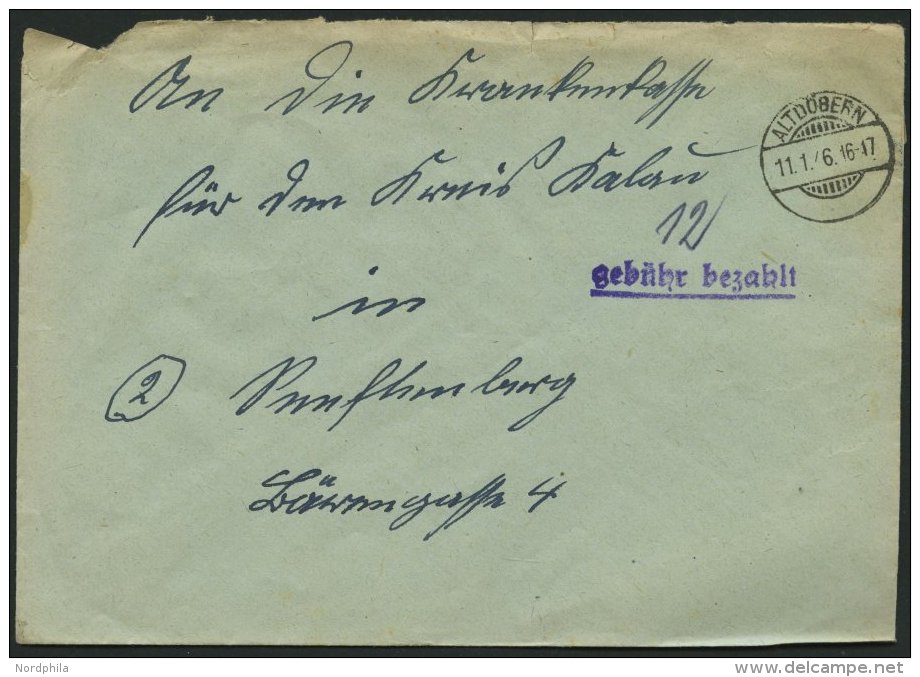 An die Krankenkasse
für den Kreis Kalau
ALTDÖBERN
11.1./6.16-17
12
gebühr bezahlt
in
2 Senftenberg
Bärengasse 4
Nordphila
www.delcampe.net